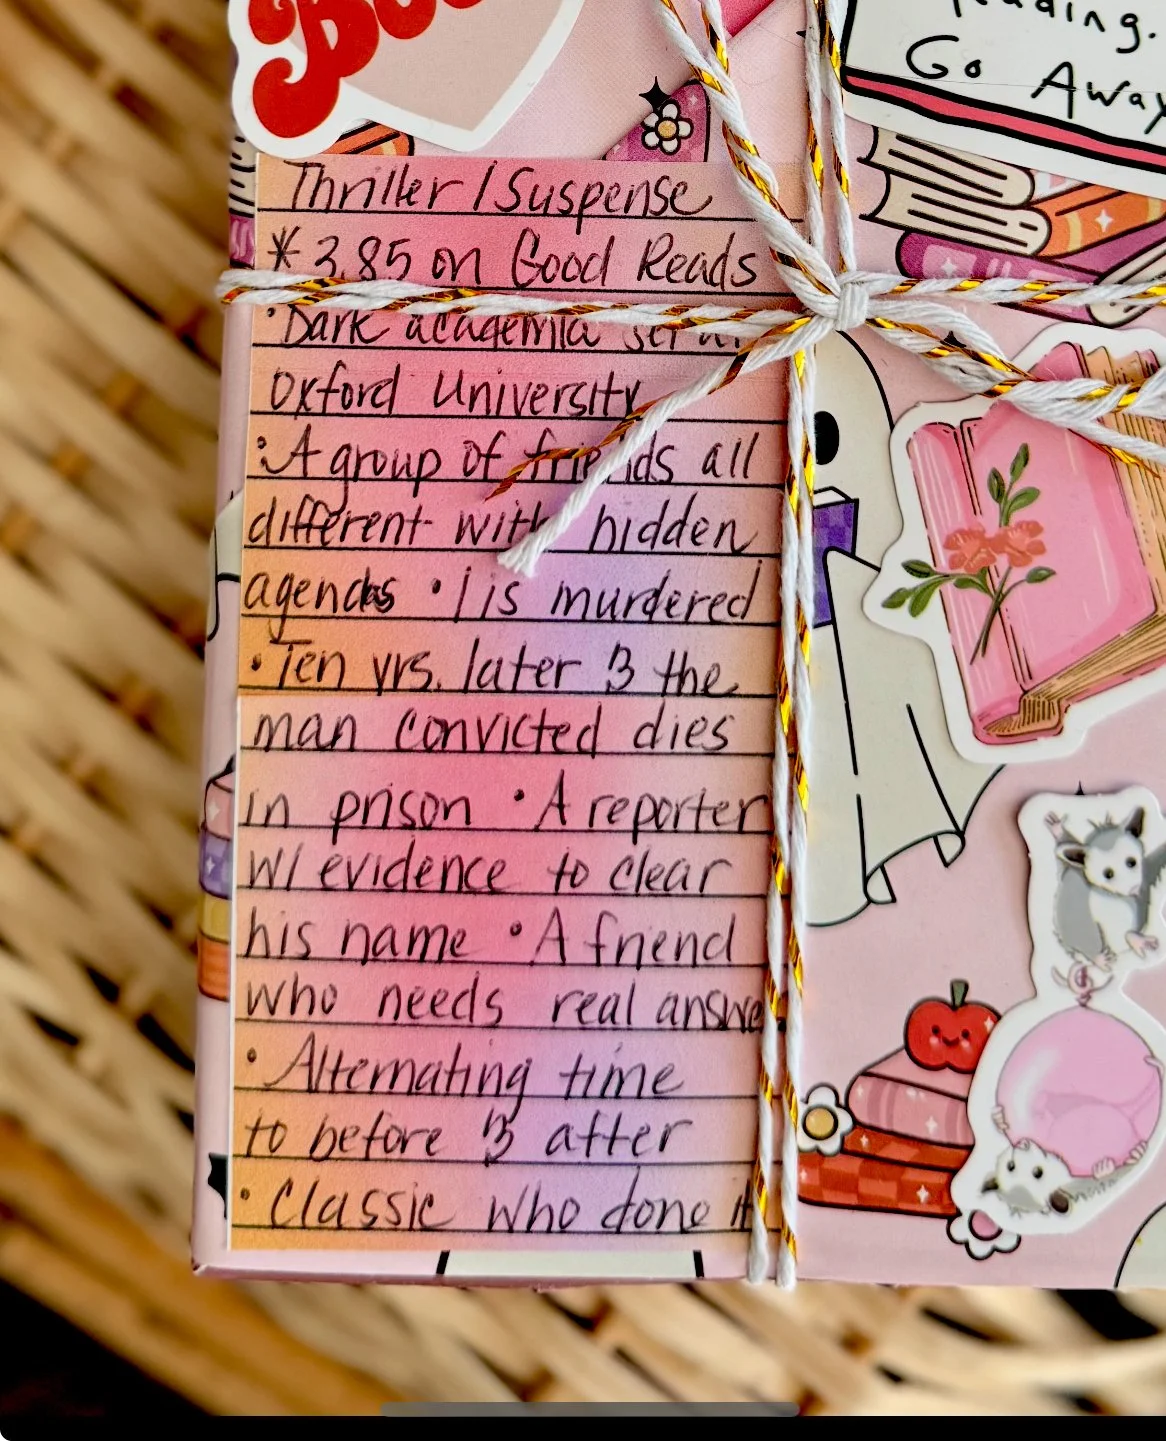 Reading.
Go Away
Thriller / Suspense
* 3.85 on Good Reads
• Dark academia set at
Oxford University
• A group of friends all
different with hidden
agendas • 1 is murdered
• Ten yrs. later & the
man convicted dies
in prison • A reporter
w/ evidence to clear
his name • A friend
who needs real
• Alternating time
to before & after
• Classic who done it